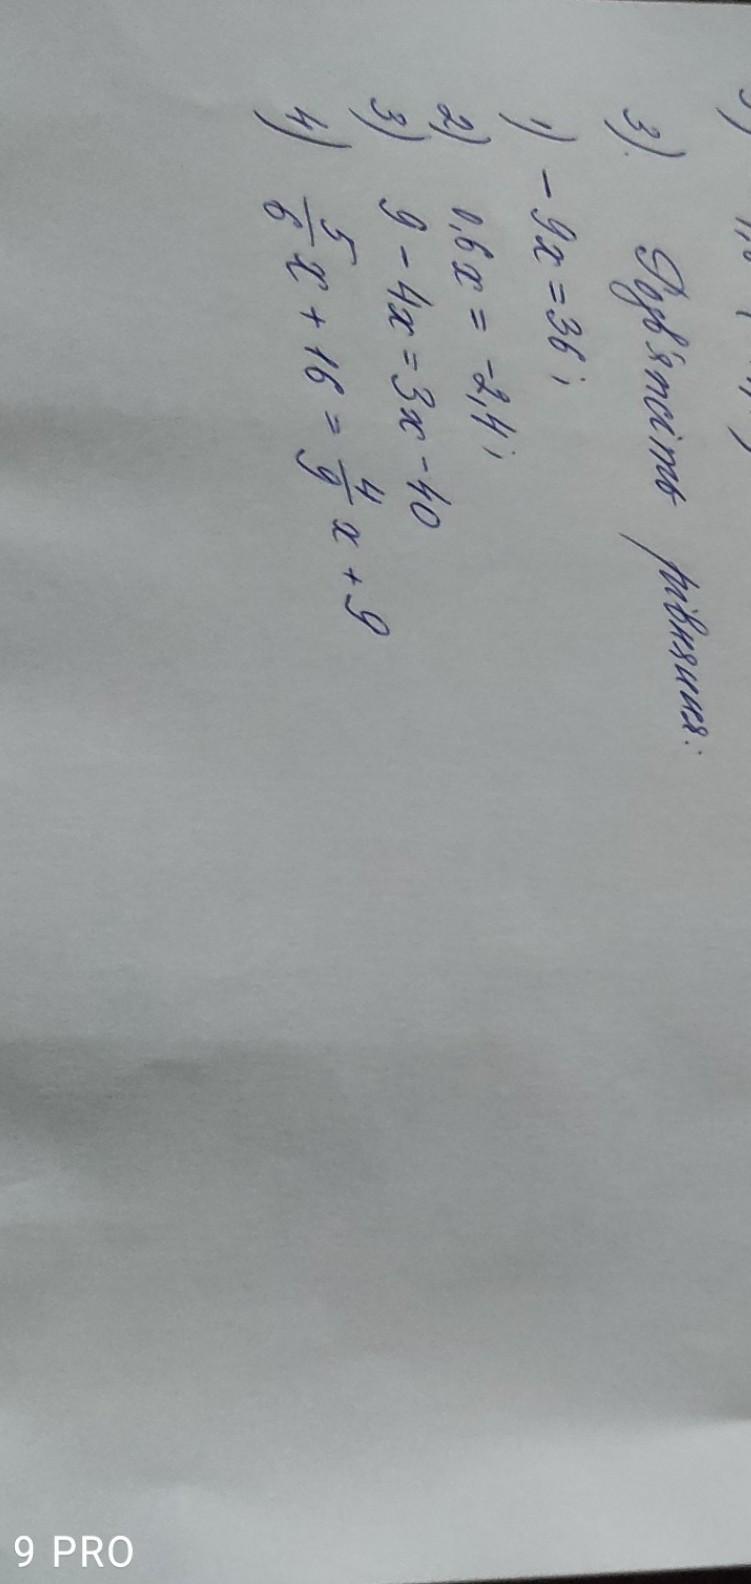 3) Розв'язіть рівняння:
1) -9x = 36;
2) 0,6x = -2,4;
3) 9 - 4x = 3x - 40
4) 5/6 x + 16 = 4/9 x + 9
9 PRO